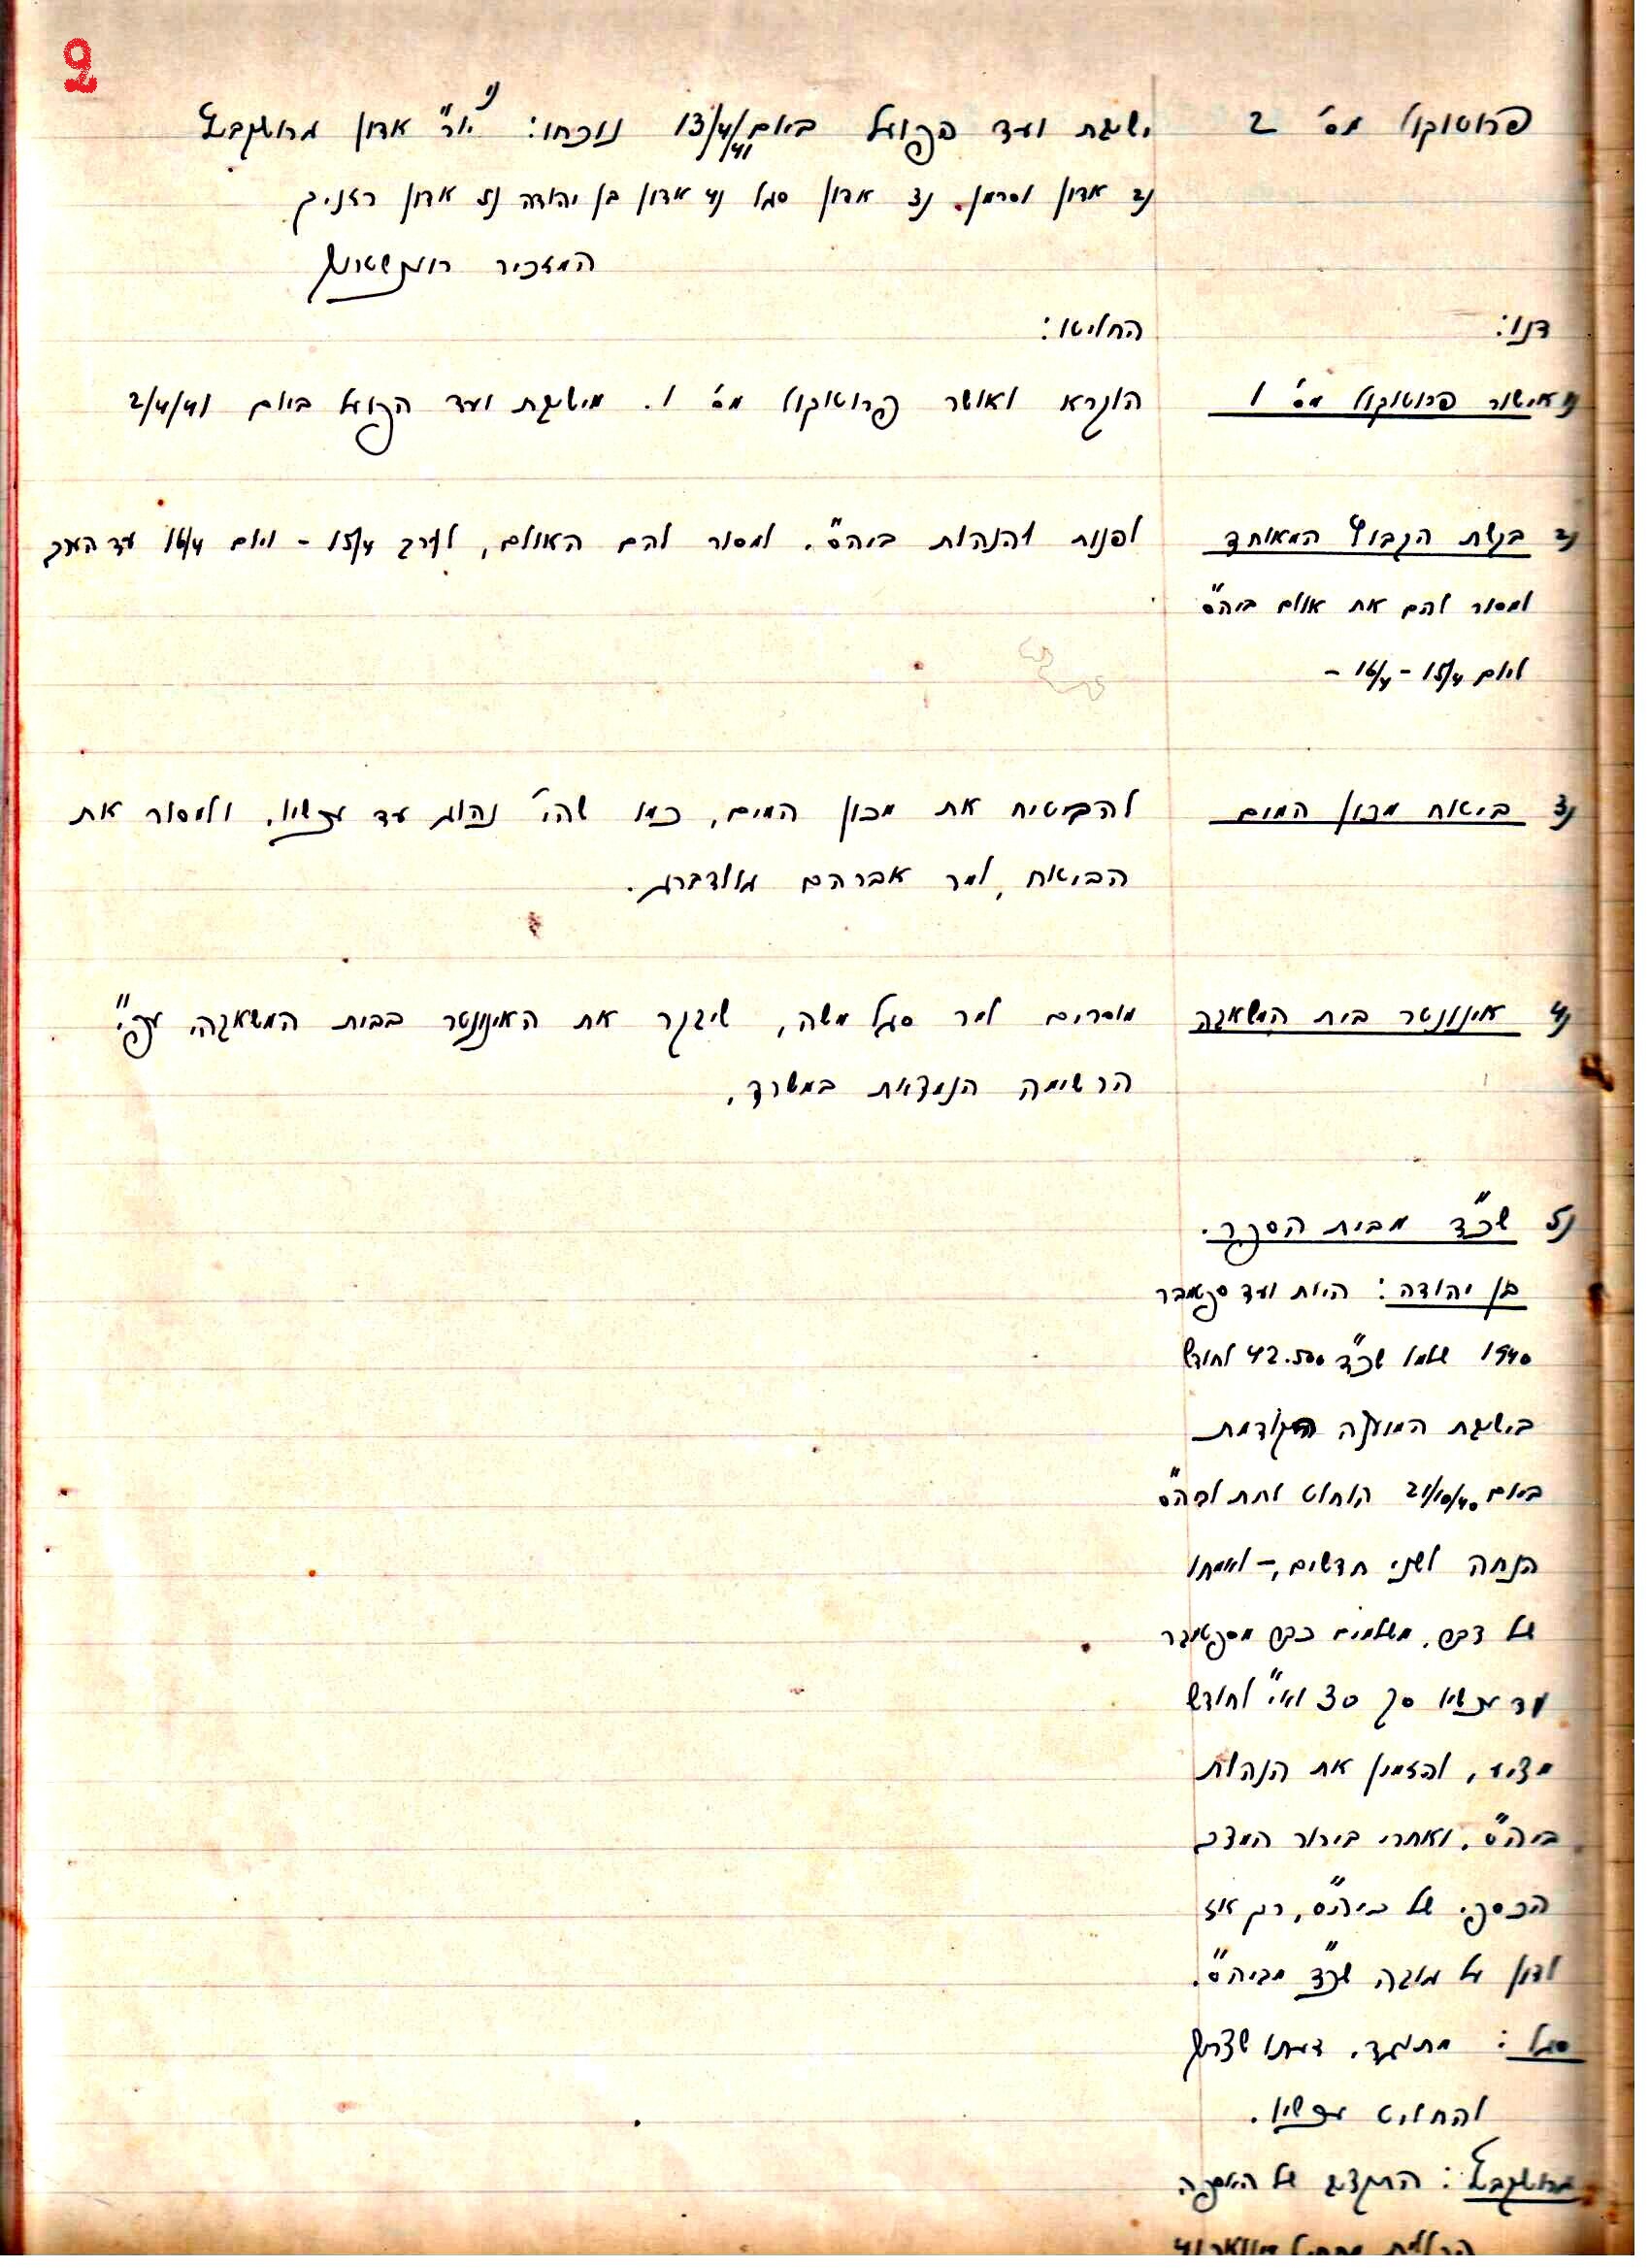 2
פרוטוקול מס' 2 ישיבת ועד הפועל ביום 13/4/41 נוכחו: 1) יו"ר אדון
2) אדון וסרמן. 3) אדון סגל 4) אדון בן יהודה 5) אדון רזניק
המזכיר רוטשטרייך
דנו: החליטו:
1) אישור פרוטוקול מס' 1 הוקרא ואושר פרוטוקול מס' 1. מישיבת ועד הפועל ביום 2/4/41
2) בקשת הקבוץ המאוחד לפנות להנהלת ביה"ס. למסור להם האולם, לערב 15/4 - ויום 16/4 עד הערב
למסור להם את אולם ביה"ס
ליום 15/4 - 16/4 -
3) ביטוח מכון המים להבטיח את מכון המים, כמו שהי' נהוג עד עכשיו, ולמסור את
הביטוח למר אברהם גולדברג.
4) אינוונטר בית המשאבה מוסרים למר סגל משה, שיבקר את האינוונטר בבית המשאבה, עפ"י
הרשימה הנמצאת במשרד.
5) שכ"ד מבית הספר.
בן יהודה: היות ועד ספטמבר
1940 שלמו שכ"ד 42.500 לחודש
בישיבת המועצה הקודמת
ביום 21/10/40 הוחלט לתת לביה"ס
הנחה לשני חדשים, - לאמתו
של דבר, משלמים כבר מספטמבר
עד עכשיו סך 30 לא"י לחודש
מציע, להזמין את הנהלת
ביה"ס, ואחרי בירור המצב
הכספי של ביה"ס, רק אז
לדון על גובה שכ"ד מביה"ס.
סגל: מתנגד. דעתו שצריך
להחליט עכשיו.
של האספה
הכללית